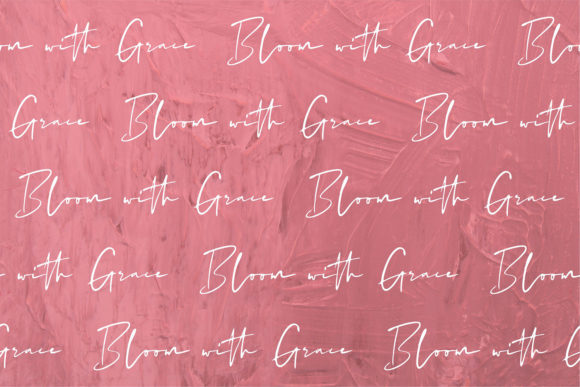 Bloom with Grace Bloom with Grace Bloom
Grace Bloom with Grace Bloom with
Bloom with Grace Bloom with Grace
with Grace Bloom with Grace Bloom
Grace Bloom with Grace Bloom with G